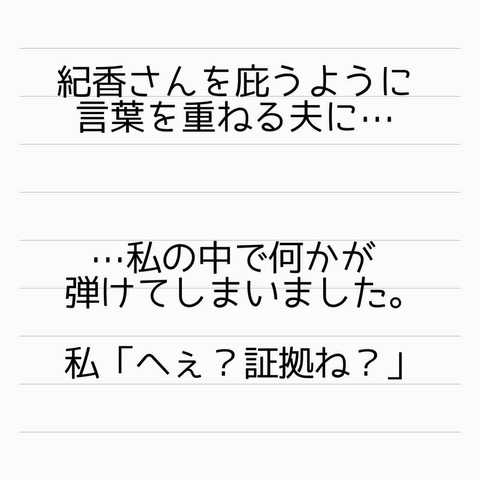 紀香さんを庇うように
言葉を重ねる夫に…
…私の中で何かが
弾けてしまいました。
私「へぇ？証拠ね？」